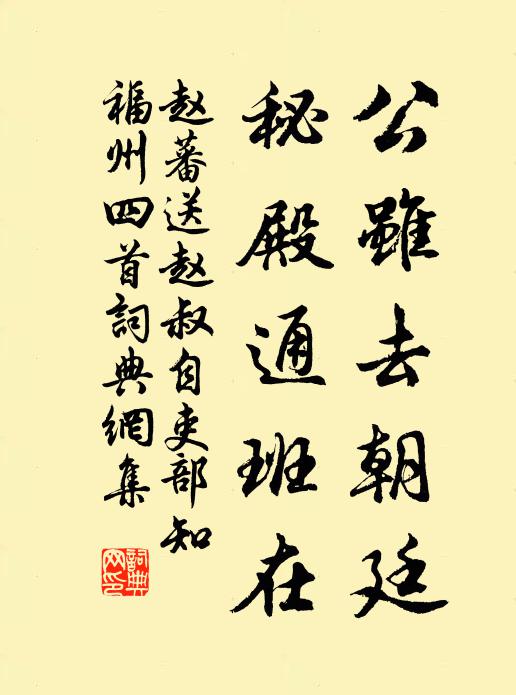 公雖去朝廷
秘殿通班在
赵蕃送赵叔自吏部知
福州四首詞典網集
詞典網印